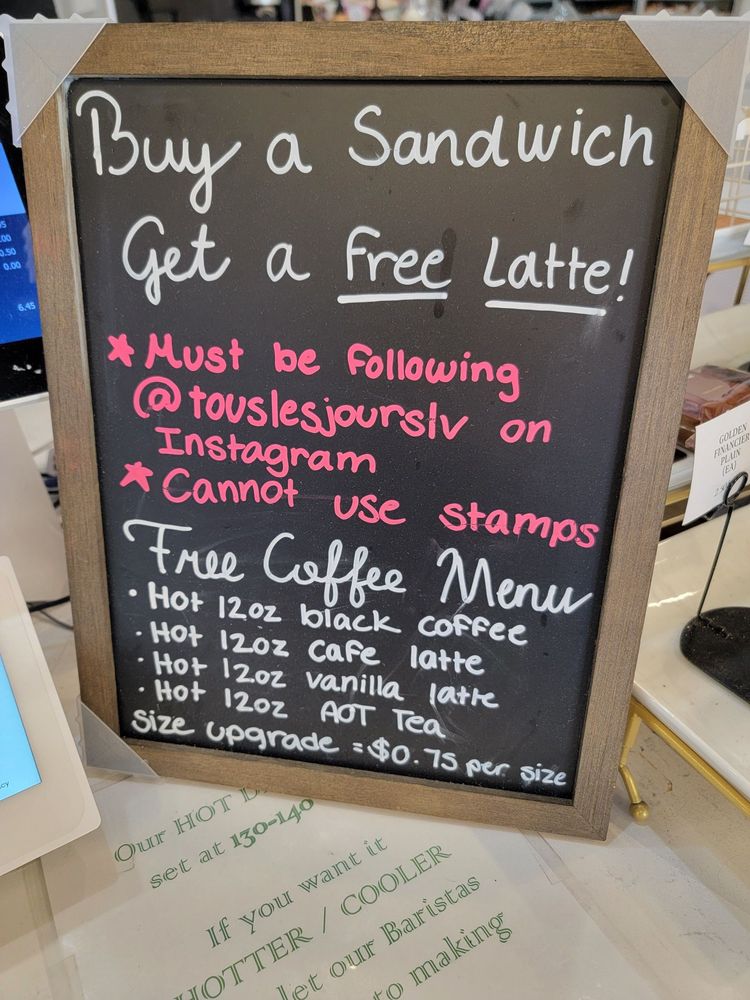 Buy a Sandwich
Get a Free Latte!
* Must be following
@touslesjourslv on
Instagram
* Cannot use stamps
Free Coffee Menu
• Hot 12oz black coffee
• Hot 12oz cafe latte
• Hot 12oz vanilla latte
• Hot 12oz AOT Tea
size upgrade = $0.75 per size
Our HOT
set at 130-140
If you want it
HOTTER / COOLER
let our Baristas
to making
GOLDEN
FINANCIER
PLAIN
(EA)
0.50
0.00
6.45